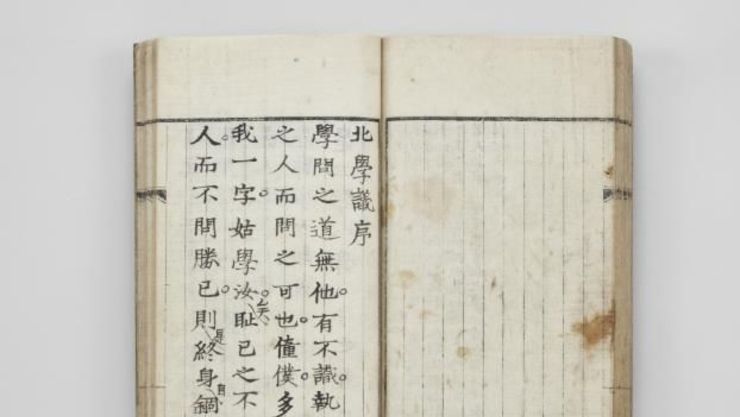 北學議序
學問之道無他有不識執
之人而問之可也僮僕多
我一字姑學汝恥己之不
人而不問勝己則終身錮